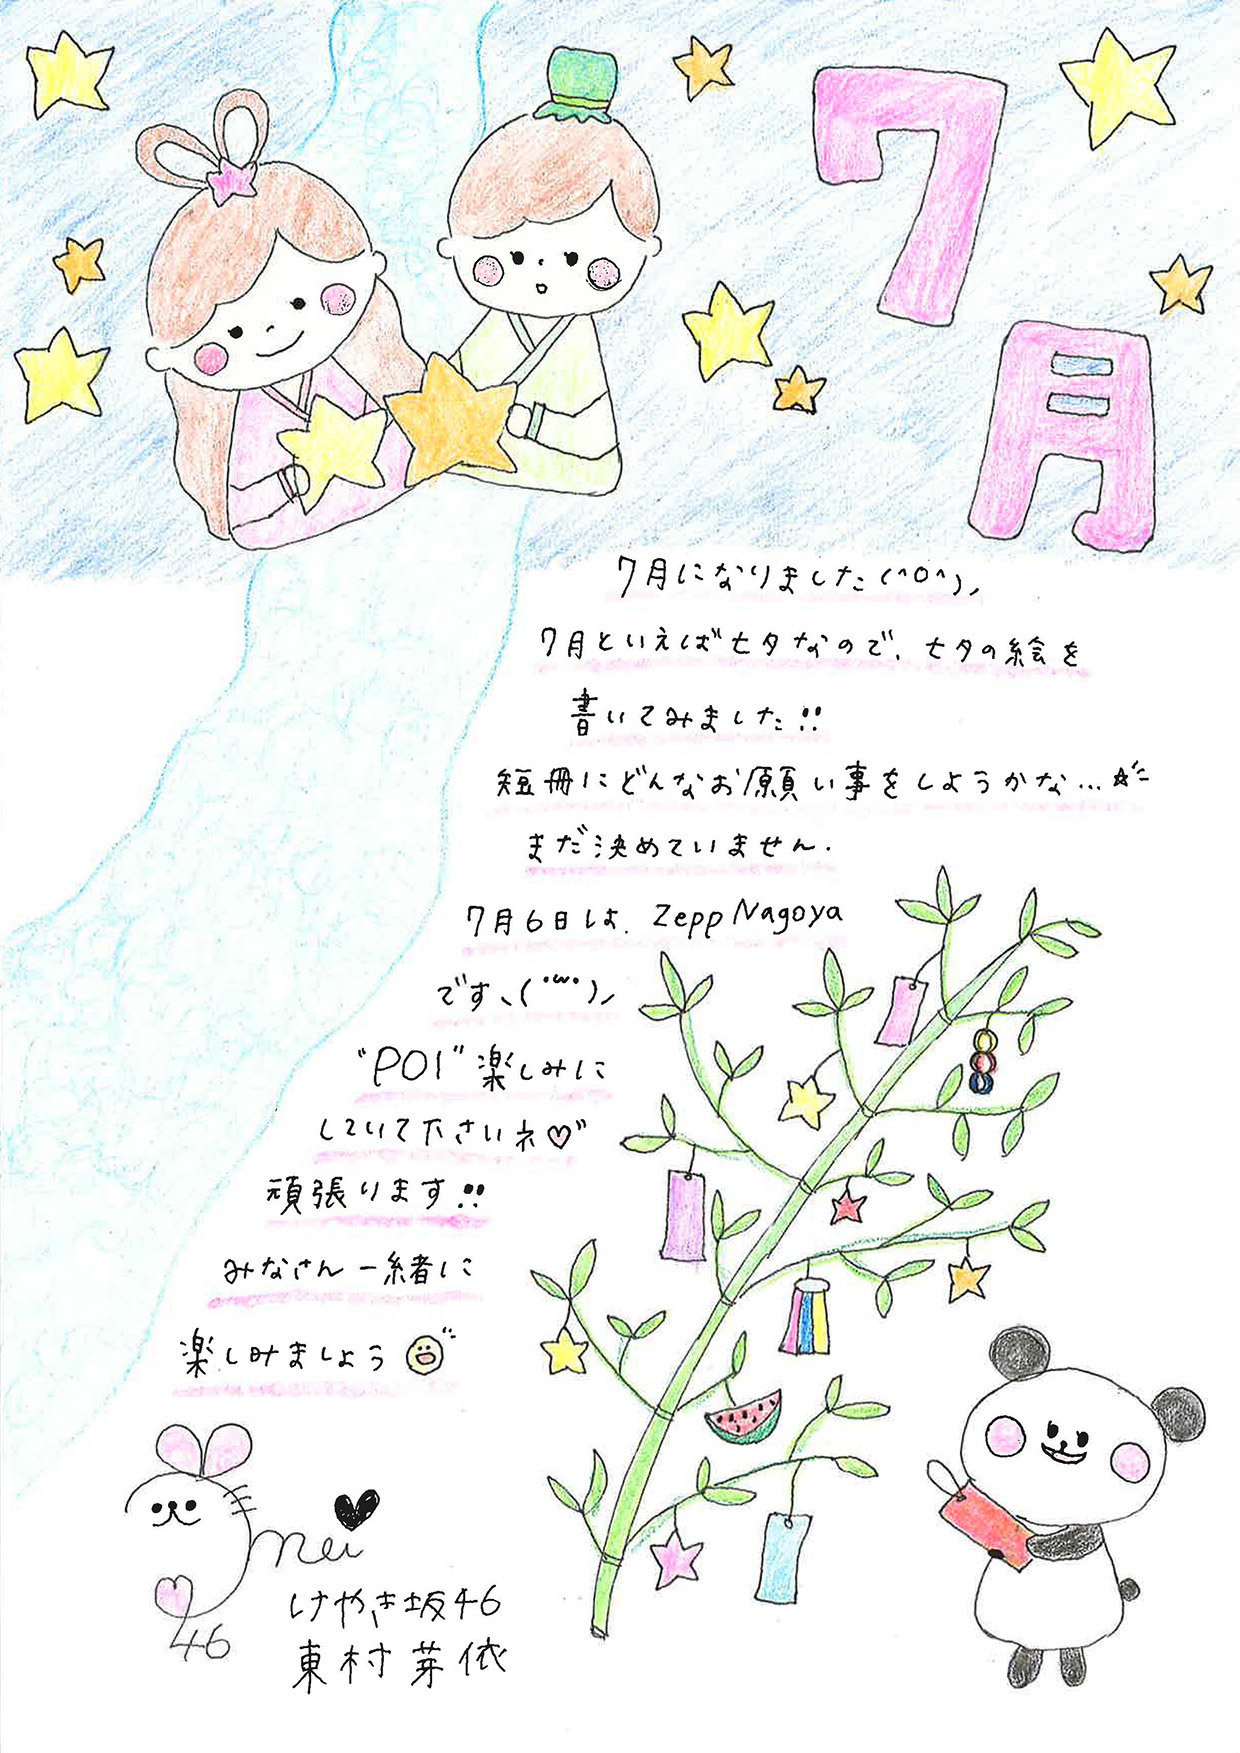 7月
7月になりました(^O^)ノ
7月といえば七夕なので、七夕の絵を
書いてみました!!
短冊にどんなお願い事をしようかな…☆
まだ決めていません.
7月6日は、Zepp Nagoya
です、(˙꒳˙)ノ
"POI"楽しみに
していて下さいネ♡
頑張ります!!
みなさん一緒に
楽しみましょう
mei♥
46
けやき坂46
東村芽依